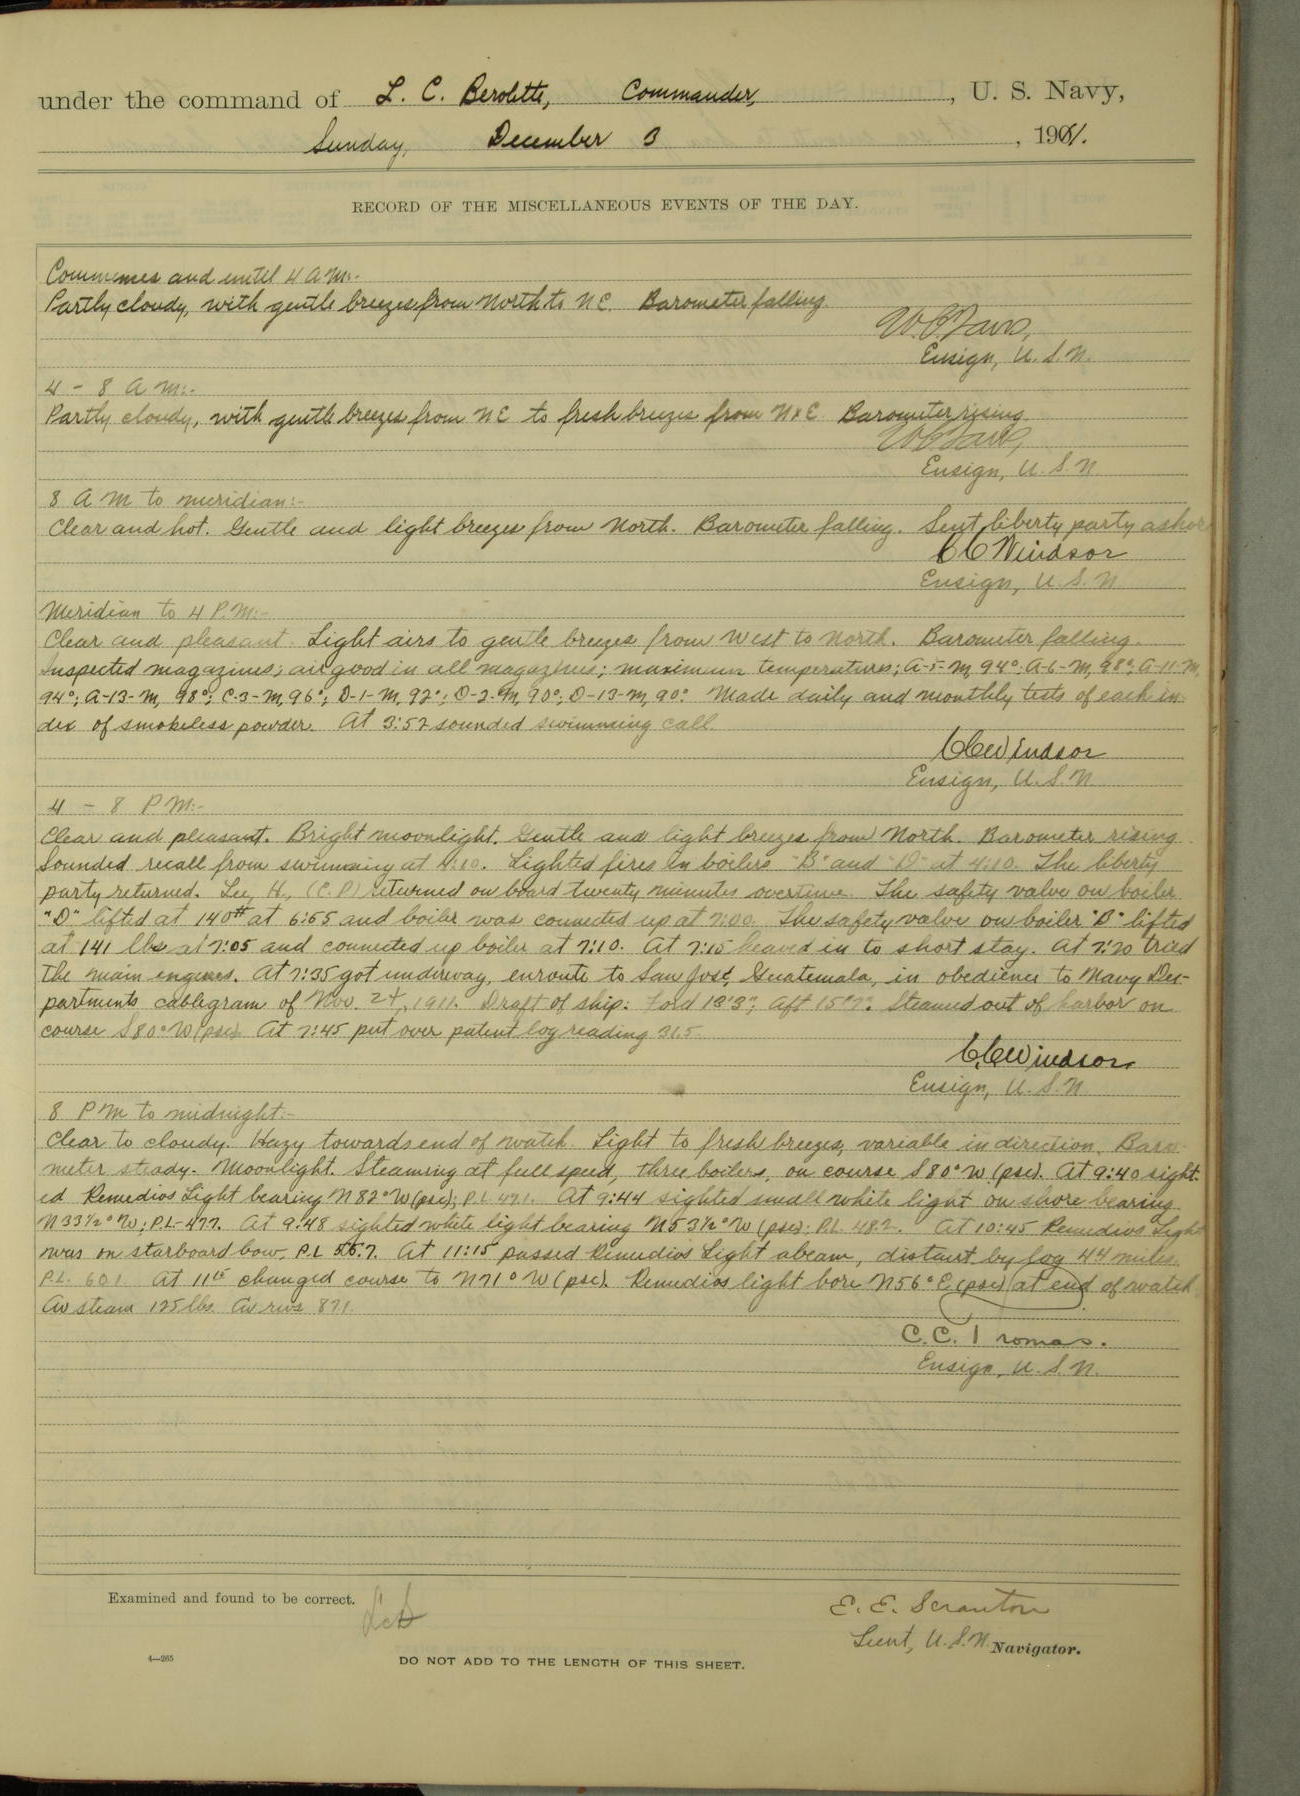 under the command of L. C. Bertolette, Commander, , U. S. Navy,
Sunday, December 3 , 1911.
RECORD OF THE MISCELLANEOUS EVENTS OF THE DAY.
Commences and until 4 A M:-
Partly cloudy, with gentle breezes from North to NE. Barometer falling.
Ensign, U. S. N.
4 - 8 A M:-
Partly cloudy, with gentle breezes from NE to fresh breezes from NxE Barometer rising
Ensign, U. S. N
8 A M to meridian:-
Clear and hot. Gentle and light breezes from North. Barometer falling. Sent liberty party ashore
C C Windsor
Ensign, U. S. N
Meridian to 4 P.M:-
Clear and pleasant. Light airs to gentle breezes from West to North. Barometer falling.
Inspected magazines; air good in all magazines; maximum temperatures; A-5-M, 94°; A-6-M, 98°; A-11-M,
94°; A-13-M, 98°; C-3-M, 96°; D-1-M, 92°; D-2-M, 90°; D-13-M, 90°. Made daily and monthly tests of each in-
dex of smokeless powder. At 3:52 sounded swimming call.
C C Windsor
Ensign, U. S. N
4 - 8 P M:-
Clear and pleasant. Bright moonlight. Gentle and light breezes from North. Barometer rising.
Sounded recall from swimming at 4:10. Lighted fires in boilers "B" and "D" at 4:10. The liberty
party returned. Lee, H, (C.P) returned on board twenty minutes overtime. The safety valve on boiler
"D" lifted at 140# at 6:55 and boiler was connected up at 7:00. The safety valve on boiler "B" lifted
at 141 lbs at 7:05 and connected up boiler at 7:10. At 7:15 heaved in to short stay. At 7:20 tried
the main engines. At 7:35 got underway, enroute to San José, Guatemala, in obedience to Navy De-
partments cablegram of Nov. 24, 1911. Draft of ship: Ford 13'3"; Aft 15'7". Steamed out of harbor on
course S80°W (psc). At 7:45 put over patent log reading 31.5
C C Windsor
Ensign, U. S. N
8 P M to midnight:-
Clear to cloudy. Hazy towards end of watch. Light to fresh breezes, variable in direction. Baro-
meter steady. Moonlight. Steaming at full speed, three boilers, on course S80°W (psc). At 9:40 sight-
ed Remedios Light bearing N82°W (psc); P.L. 47.1. At 9:44 sighted small white light on shore bearing
N33½°W; P.L-47.7. At 9:48 sighted white light bearing N53½°W (psc); P.L. 48.2. At 10:45 Remedios Light
was on starboard bow. P.L 56.7. At 11:15 passed Remedios Light abeam, distant by log 4.4 miles.
P.L. 60.1 At 11¹⁵ changed course to N71°W (psc). Remedios light bore N56°E (psc) at end of watch
Av steam 125 lbs. Av revs. 87.1.
C. C. Thomas.
Ensign, U. S. N.
Examined and found to be correct.
E. E. Scranton
Lieut, U. S. N. Navigator.
4—265
DO NOT ADD TO THE LENGTH OF THIS SHEET.